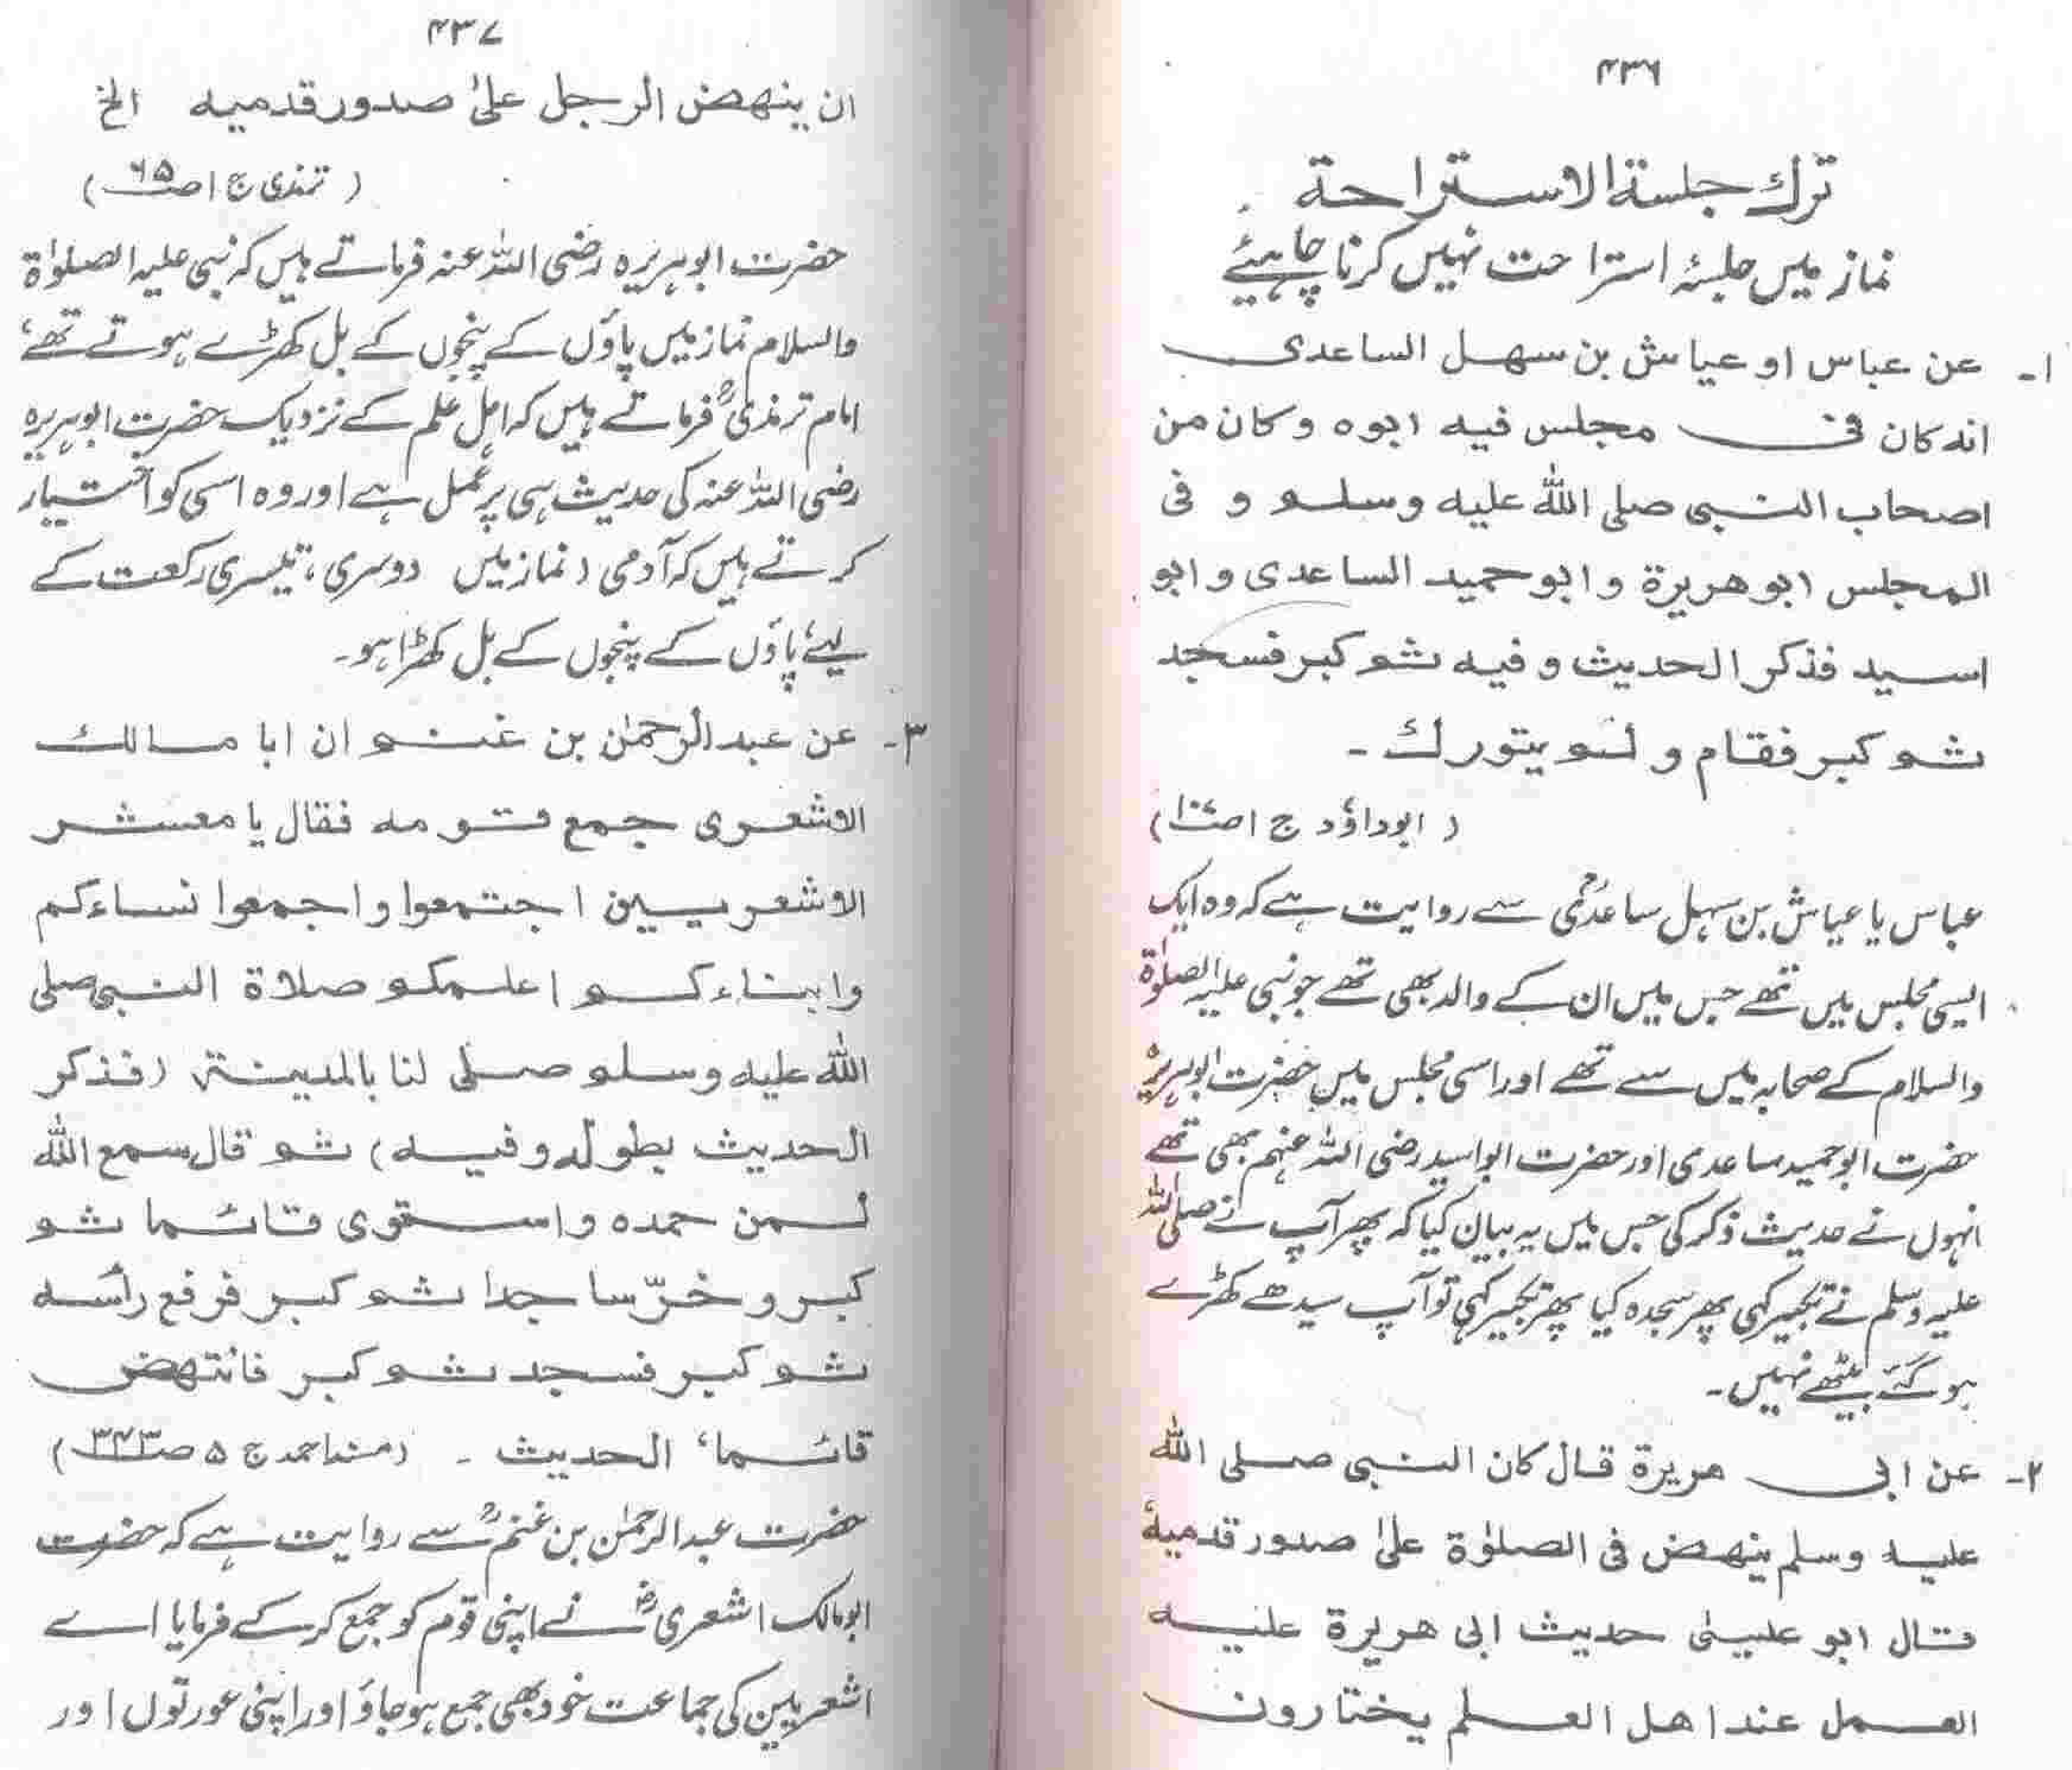 ۴۳۶
ترك جلسة الاستراحة
نماز میں جلسۂ استراحت نہیں کرنا چاہیئے
۱۔ عن عباس او عياش بن سهل الساعدى
انه كان فى مجلس فيه ابوه وكان من
اصحاب النبى صلى الله عليه وسلم و فى
المجلس ابو هريرة و ابو حميد الساعدى و ابو
اسيد فذكر الحديث وفيه ثم كبر فسجد
ثم كبر فقام ولم يتورك ـ
( ابوداؤد ج ۱ ص۱۰۷)
عباس یا عیاش بن سہل ساعدیؒ سے روایت ہے کہ وہ ایک
ایسی مجلس میں تھے جس میں ان کے والد بھی تھے جو نبی علیہ الصلوٰۃ
والسلام کے صحابہ میں سے تھے اور اسی مجلس میں حضرت ابوہریرہؓ
حضرت ابو حمید ساعدی اور حضرت ابو اسید رضی اللہ عنہم بھی تھے
انہوں نے حدیث ذکر کی جس میں یہ بیان کیا کہ پھر آپ نے صلی اللہ
علیہ وسلم نے تکبیر کہی پھر سجدہ کیا پھر تکبیر کہی تو آپ سیدھے کھڑے
ہو گئے بیٹھے نہیں۔
۲۔ عن ابى هريرة قال كان النبى صلى الله
عليه وسلم ينهض فى الصلوٰة علىٰ صدور قدميه
قال ابو عيسىٰ حديث ابى هريرة عليه
العمل عند اهل العلم يختارون
۴۳۷
ان ينهض الرجل علىٰ صدور قدميه الخ
( ترمذی ج ۱ ص۶۵)
حضرت ابوہریرہ رضی اللہ عنہ فرماتے ہیں کہ نبی علیہ الصلوٰۃ
والسلام نماز میں پاؤں کے پنجوں کے بل کھڑے ہوتے تھے،
امام ترمذیؒ فرماتے ہیں کہ اہل علم کے نزدیک حضرت ابوہریرہ
رضی اللہ عنہ کی حدیث ہی پر عمل ہے اور وہ اسی کو اختیار
کرتے ہیں کہ آدمی (نماز میں دوسری، تیسری رکعت کے
لیے، پاؤں کے پنجوں کے بل کھڑا ہو۔
۳۔ عن عبد الرحمٰن بن غنم ان ابا مالك
الاشعرى جمع قومه فقال يا معشر
الاشعريين اجتمعوا واجمعوا نساءكم
وابناءكم اعلمكم صلاة النبى صلى
الله عليه وسلم صلى لنا بالمدينة (فذكر
الحديث بطوله وفيه) ثم قال سمع الله
لمن حمده واستوى قائما ثم
كبر وخرّ ساجدا ثم كبر فرفع رأسه
ثم كبر فسجد ثم كبر فانتهض
قائما، الحديث ـ (مسند احمد ج ۵ ص۳۴۳)
حضرت عبدالرحمٰن بن غنمؒ سے روایت ہے کہ حضرت
ابومالک اشعریؓ نے اپنی قوم کو جمع کر کے فرمایا اے
اشعریین کی جماعت خود بھی جمع ہو جاؤ اور اپنی عورتوں اور